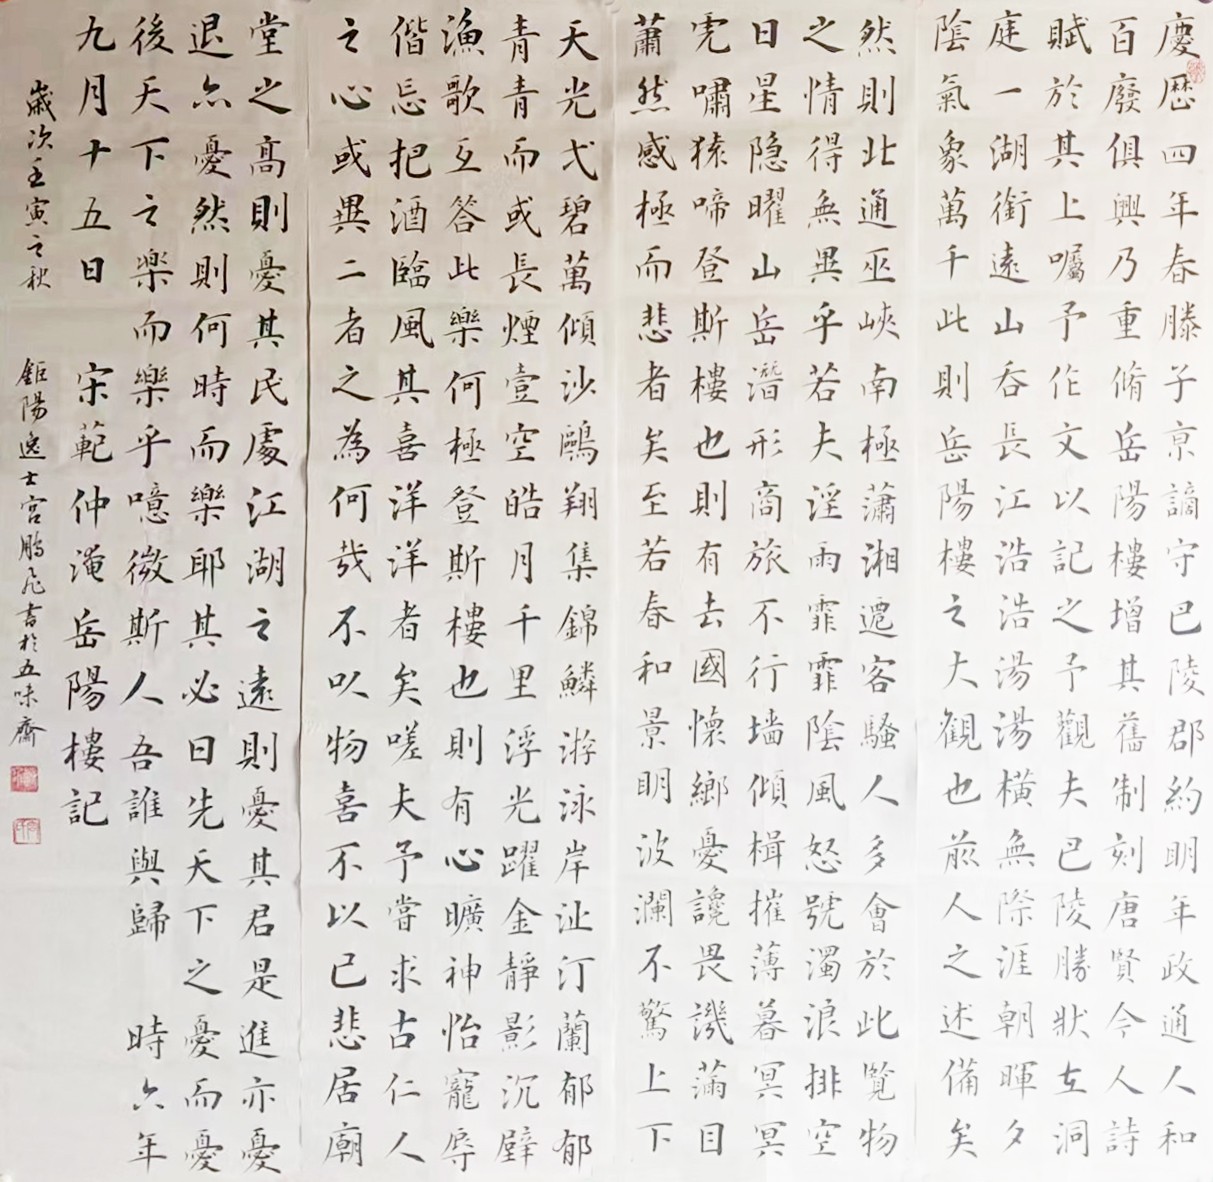 慶厯四年春滕子京謫守巴陵郡約明年政通人和
百廢俱興乃重脩岳陽樓增其舊制刻唐賢今人詩
賦於其上囑予作文以記之予觀夫巴陵勝狀在洞
庭一湖銜遠山吞長江浩浩湯湯橫無際涯朝暉夕
陰氣象萬千此則岳陽樓之大觀也前人之述備矣
然則北通巫峽南極瀟湘遷客騷人多會於此覽物
之情得無異乎若夫淫雨霏霏陰風怒號濁浪排空
日星隐曜山岳潛形商旅不行墙傾楫摧薄暮冥冥
虎嘯猿啼登斯樓也則有去國懷鄉憂讒畏譏滿目
蕭然感極而悲者矣至若春和景明波瀾不驚上下
天光弌碧萬傾沙鷗翔集錦鱗游泳岸沚汀蘭郁郁
青青而或長煙壹空皓月千里浮光躍金靜影沉璧
漁歌互答此樂何極登斯樓也則有心曠神怡寵辱
偕忘把酒臨風其喜洋洋者矣嗟夫予嘗求古仁人
之心或異二者之為何哉不以物喜不以己悲居廟
堂之高則憂其民處江湖之遠則憂其君是進亦憂
退亦憂然則何時而樂耶其必曰先天下之憂而憂
後天下之樂而樂乎噫微斯人吾誰與歸 時六年
九月十五日 宋範仲淹岳陽樓記
歲次壬寅之秋 鉅陽逸士宮鵬飛書於五味齋